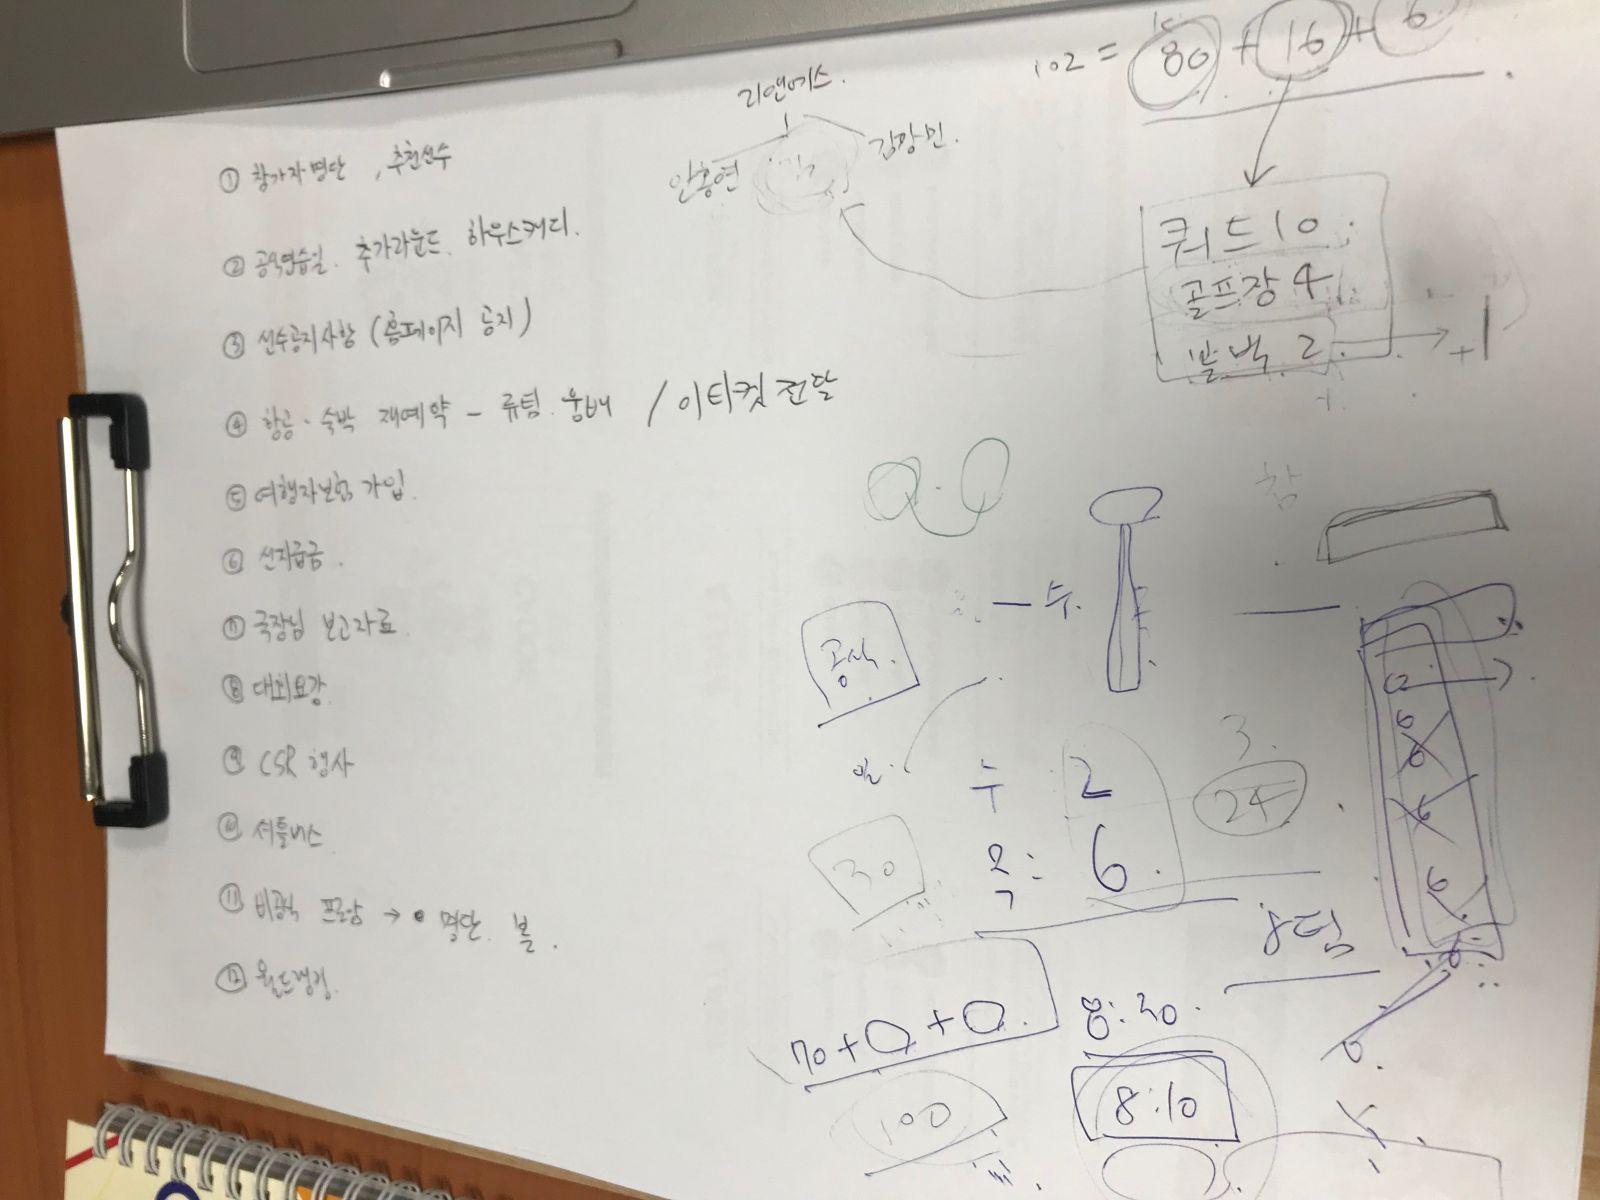 ① 참가자명단, 추천선수
② 공식연습일. 추가라운드. 하우스캐디.
③ 선수공지사항 (홈페이지 공지)
④ 항공·숙박 재예약 - 류팀. / 이티켓 전달
⑤ 여행자보험 가입.
⑥ 선지급금.
⑦ 국장님 보고자료.
⑧ 대회요강.
⑨ CSR 행사
⑩ 셔틀버스
⑪ 비공식 프로암 → • 명단. 볼.
⑫ 월드랭킹.
102 = 80 + 16 + 6
리앤에스.
안홍연
김광민.
쿼드 10.
골프장 4
2 → +1
참
공식.
수.
수 : 2
목 : 6.
3.
24
30
8팀
70 + 0 + 0.
8:30.
8:10
100